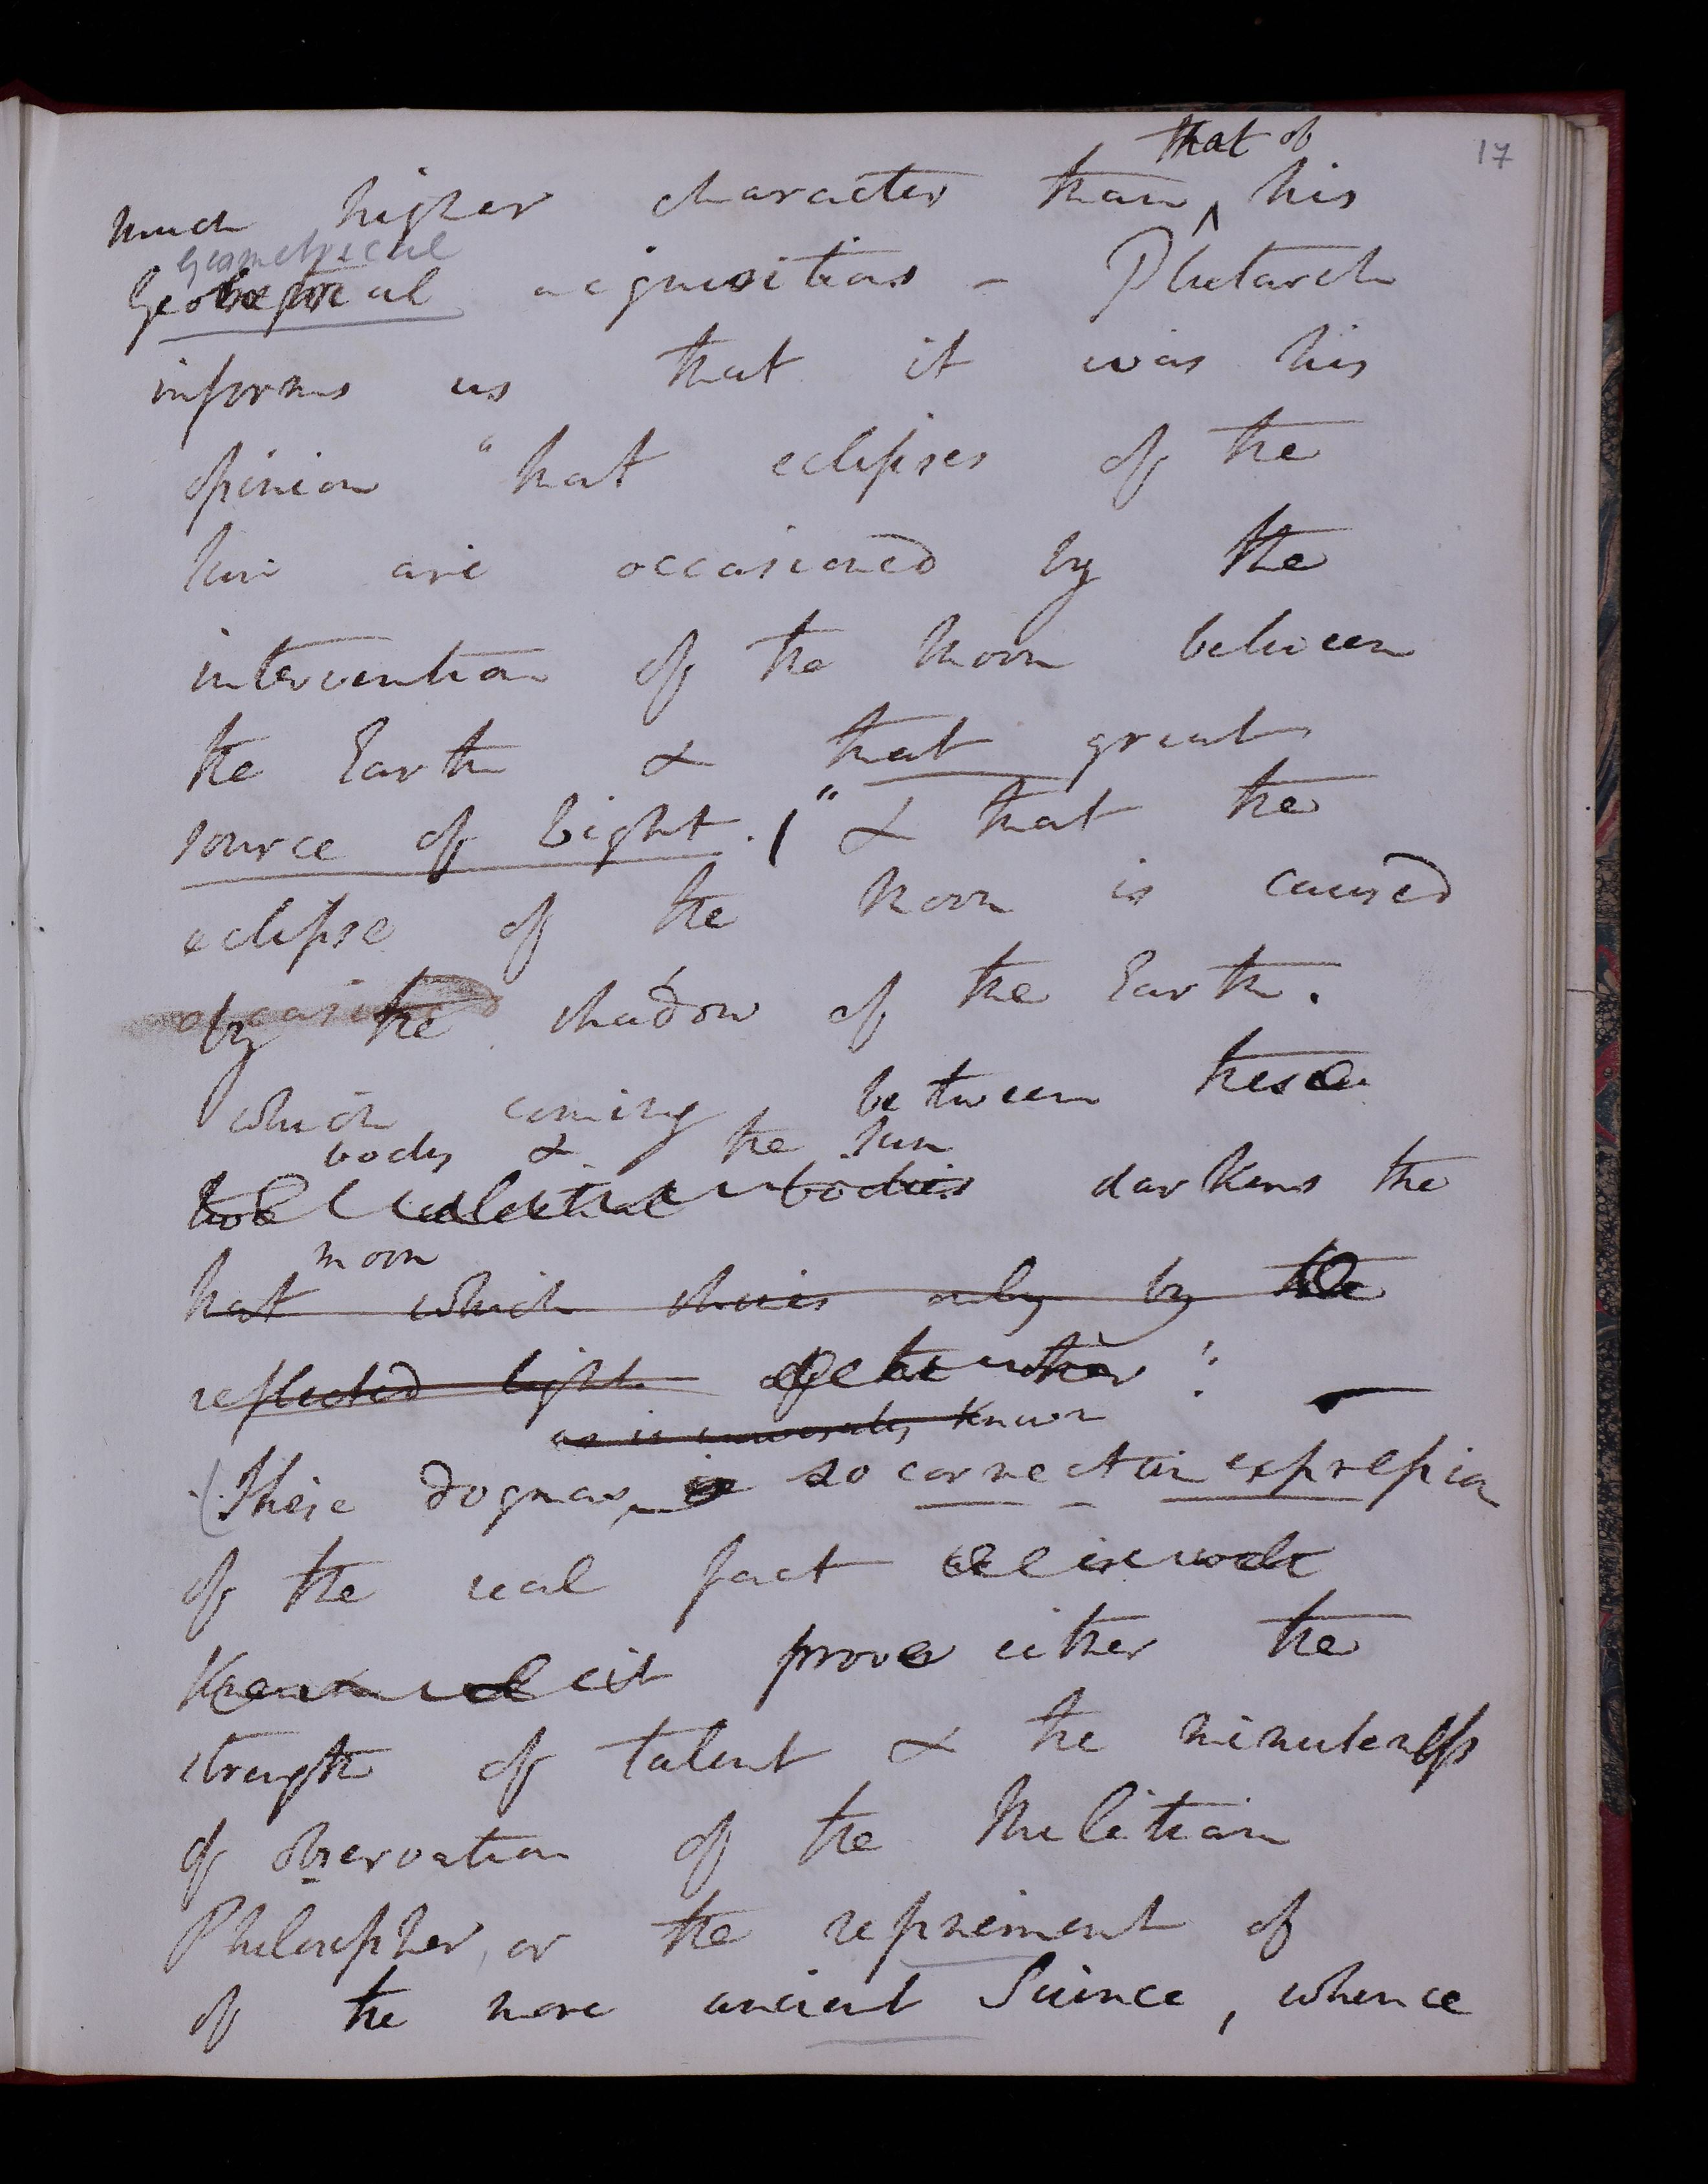 that of
17
much higher character than his
geometrical
Geometrical acquisitions - Plutarch
informs us that it was his
opinion "that eclipses of the
sun are occasioned by the
intervention of the Moon between
the Earth & that great
source of Light." & that the
eclipse of the Moon is caused
by the shadow of the Earth.
which coming between these
body & the sun
two celestial bodies darkens the
moon
that which shines only by the
reflected light of the other".
as is universally known
(These dogmas, so correct an expression
of the real fact
prove either the
strength of talent & the minuteness
of observation of the Miletian
Philosopher, or the refinement of
of the more ancient Science, whence